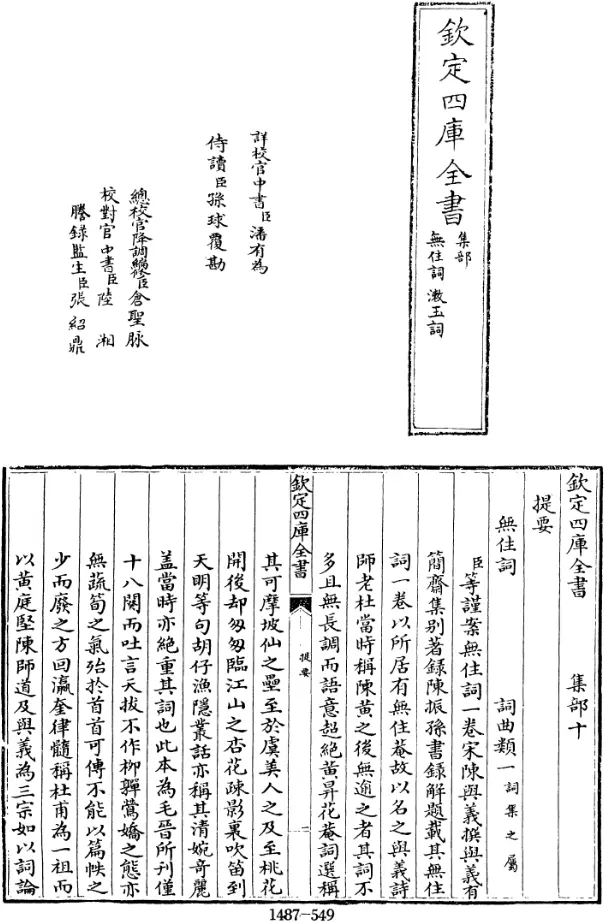 欽定四庫全書
集部
無住詞 漱玉詞
詳校官中書臣潘有為
侍讀臣孫球覆勘
總校官降調編修臣倉聖脉
校對官中書臣陸 湘
謄錄監生臣張紹鼎
欽定四庫全書 集部十
提要
無住詞 詞曲類一詞集之屬
臣等謹案無住詞一卷宋陳與義撰與義有
簡齋集别著録陳振孫書録解題載其無住
詞一卷以所居有無住菴故以名之與義詩
師老杜當時稱陳黄之後無逾之者其詞不
多且無長調而語意超絶黄昇花菴詞選稱
欽定四庫全書
提要
一
其可摩坡仙之壘至於虞美人之及至桃花
開後却匆匆臨江仙之杏花疎影裏吹笛到
天明等句胡仔漁隱叢話亦稱其清婉竒麗
盖當時亦絶重其詞也此本為毛晉所刊僅
十八闋而吐言天拔不作柳嚲鶯嬌之態亦
無蔬筍之氣殆於首首可傳不能以篇帙之
少而廢之方回瀛奎律髓稱杜甫為一祖而
以黄庭堅陳師道及與義為三宗如以詞論
1487-549